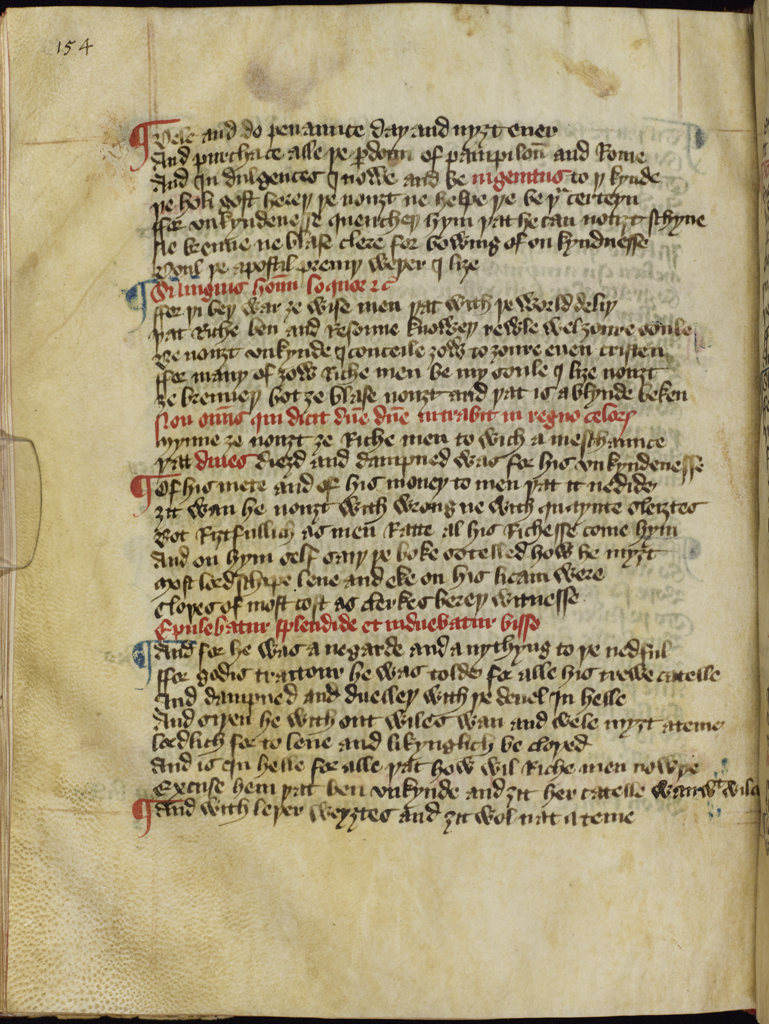 154
Dele and do penaunce day and nyȝt euer
And purchace alle þe pdoun of pampiloun and Rome
And Indulgences I nowe and be ingratus to þi kynde
þe holi gost hereþ þe nouȝt ne helpe þe be þu certeyn
ffor vnkyndenesse quencheþ hym þat he can nouȝt schyne
Ne brenne ne blase clere for bowing of on kyndnesse
Poul þe apostil preuiþ weþer I liȝe
Si linguis hoim loquar &c
ffor þi beþ war ȝe wise men þat with þe world deliþ
þat Riche ben and Resoune knoweþ rewle wel ȝoure soule
Be nouȝt vnkynde I conceile ȝow to ȝoure euen cristen
ffor many of ȝow Riche men be my soule I liȝe nouȝt
ȝe brenneþ bot ȝe blase nouȝt and þat is a blynde beken
Non omīs qui dicit dn̄e dn̄e intrabit in regno celorꝫ
wynne ȝe nouȝt ȝe Riche men to wich a meschaunce
þat diues dieȝd and dampned was for his vnkyndenesse
Of his mete and of his money to men þat it nedide
ȝit wan he nouȝt with wrong ne with quaynte sleiȝtes
Bot Riȝtfullich as men Ratte al his Richesse come hym
And on hym self saiþ þe boke sotelled how he myȝt
Most lordschipe leue and eke on his licam were
Cloþes of most cost as clerkes bereþ witnesse
Epulebatur splendide et induebatur bisso
And for he was a negarde and a nythyng to þe nedful
ffor godis traitour he was tolde for alle his trewe catelle
And dampned and duelleþ with þe deuel In helle
And siþen he with out wiles wan and wele myȝt ateme
lordlich for to leue and likynglich be cloþed
And is In helle for alle þat how wil Riche men nowþe
Excuse hem þat ben vnkynde and ȝit her catelle wanne wt wiles
And with leþer weyȝtes and ȝit wol nat ateme